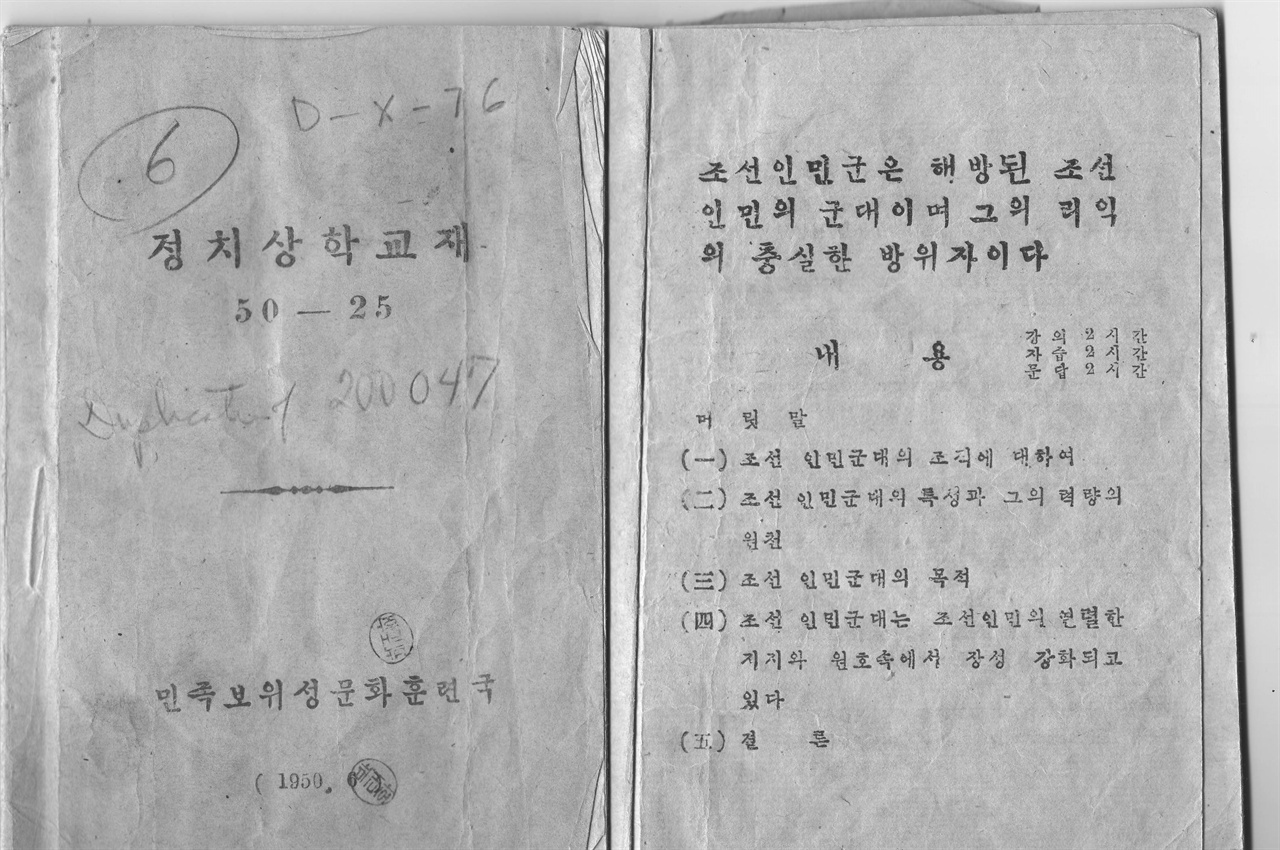 D-X-76
6
정치상학교재
50 — 25
Duplicate of 200047
민족보위성문화훈련국
( 1950. 6
조선인민군은 해방된 조선
인민의 군대이며 그의 리익
의 충실한 방위자이다
내 용
강의 2시간
자습 2시간
문답 2시간
머릿말
(一) 조선 인민군대의 조직에 대하여
(二) 조선 인민군대의 특성과 그의 력량의
원천
(三) 조선 인민군대의 목적
(四) 조선 인민군대는 조선인민의 열렬한
지지와 원호속에서 장성 강화되고
있다
(五) 결 론